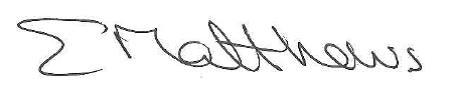 E Matthews